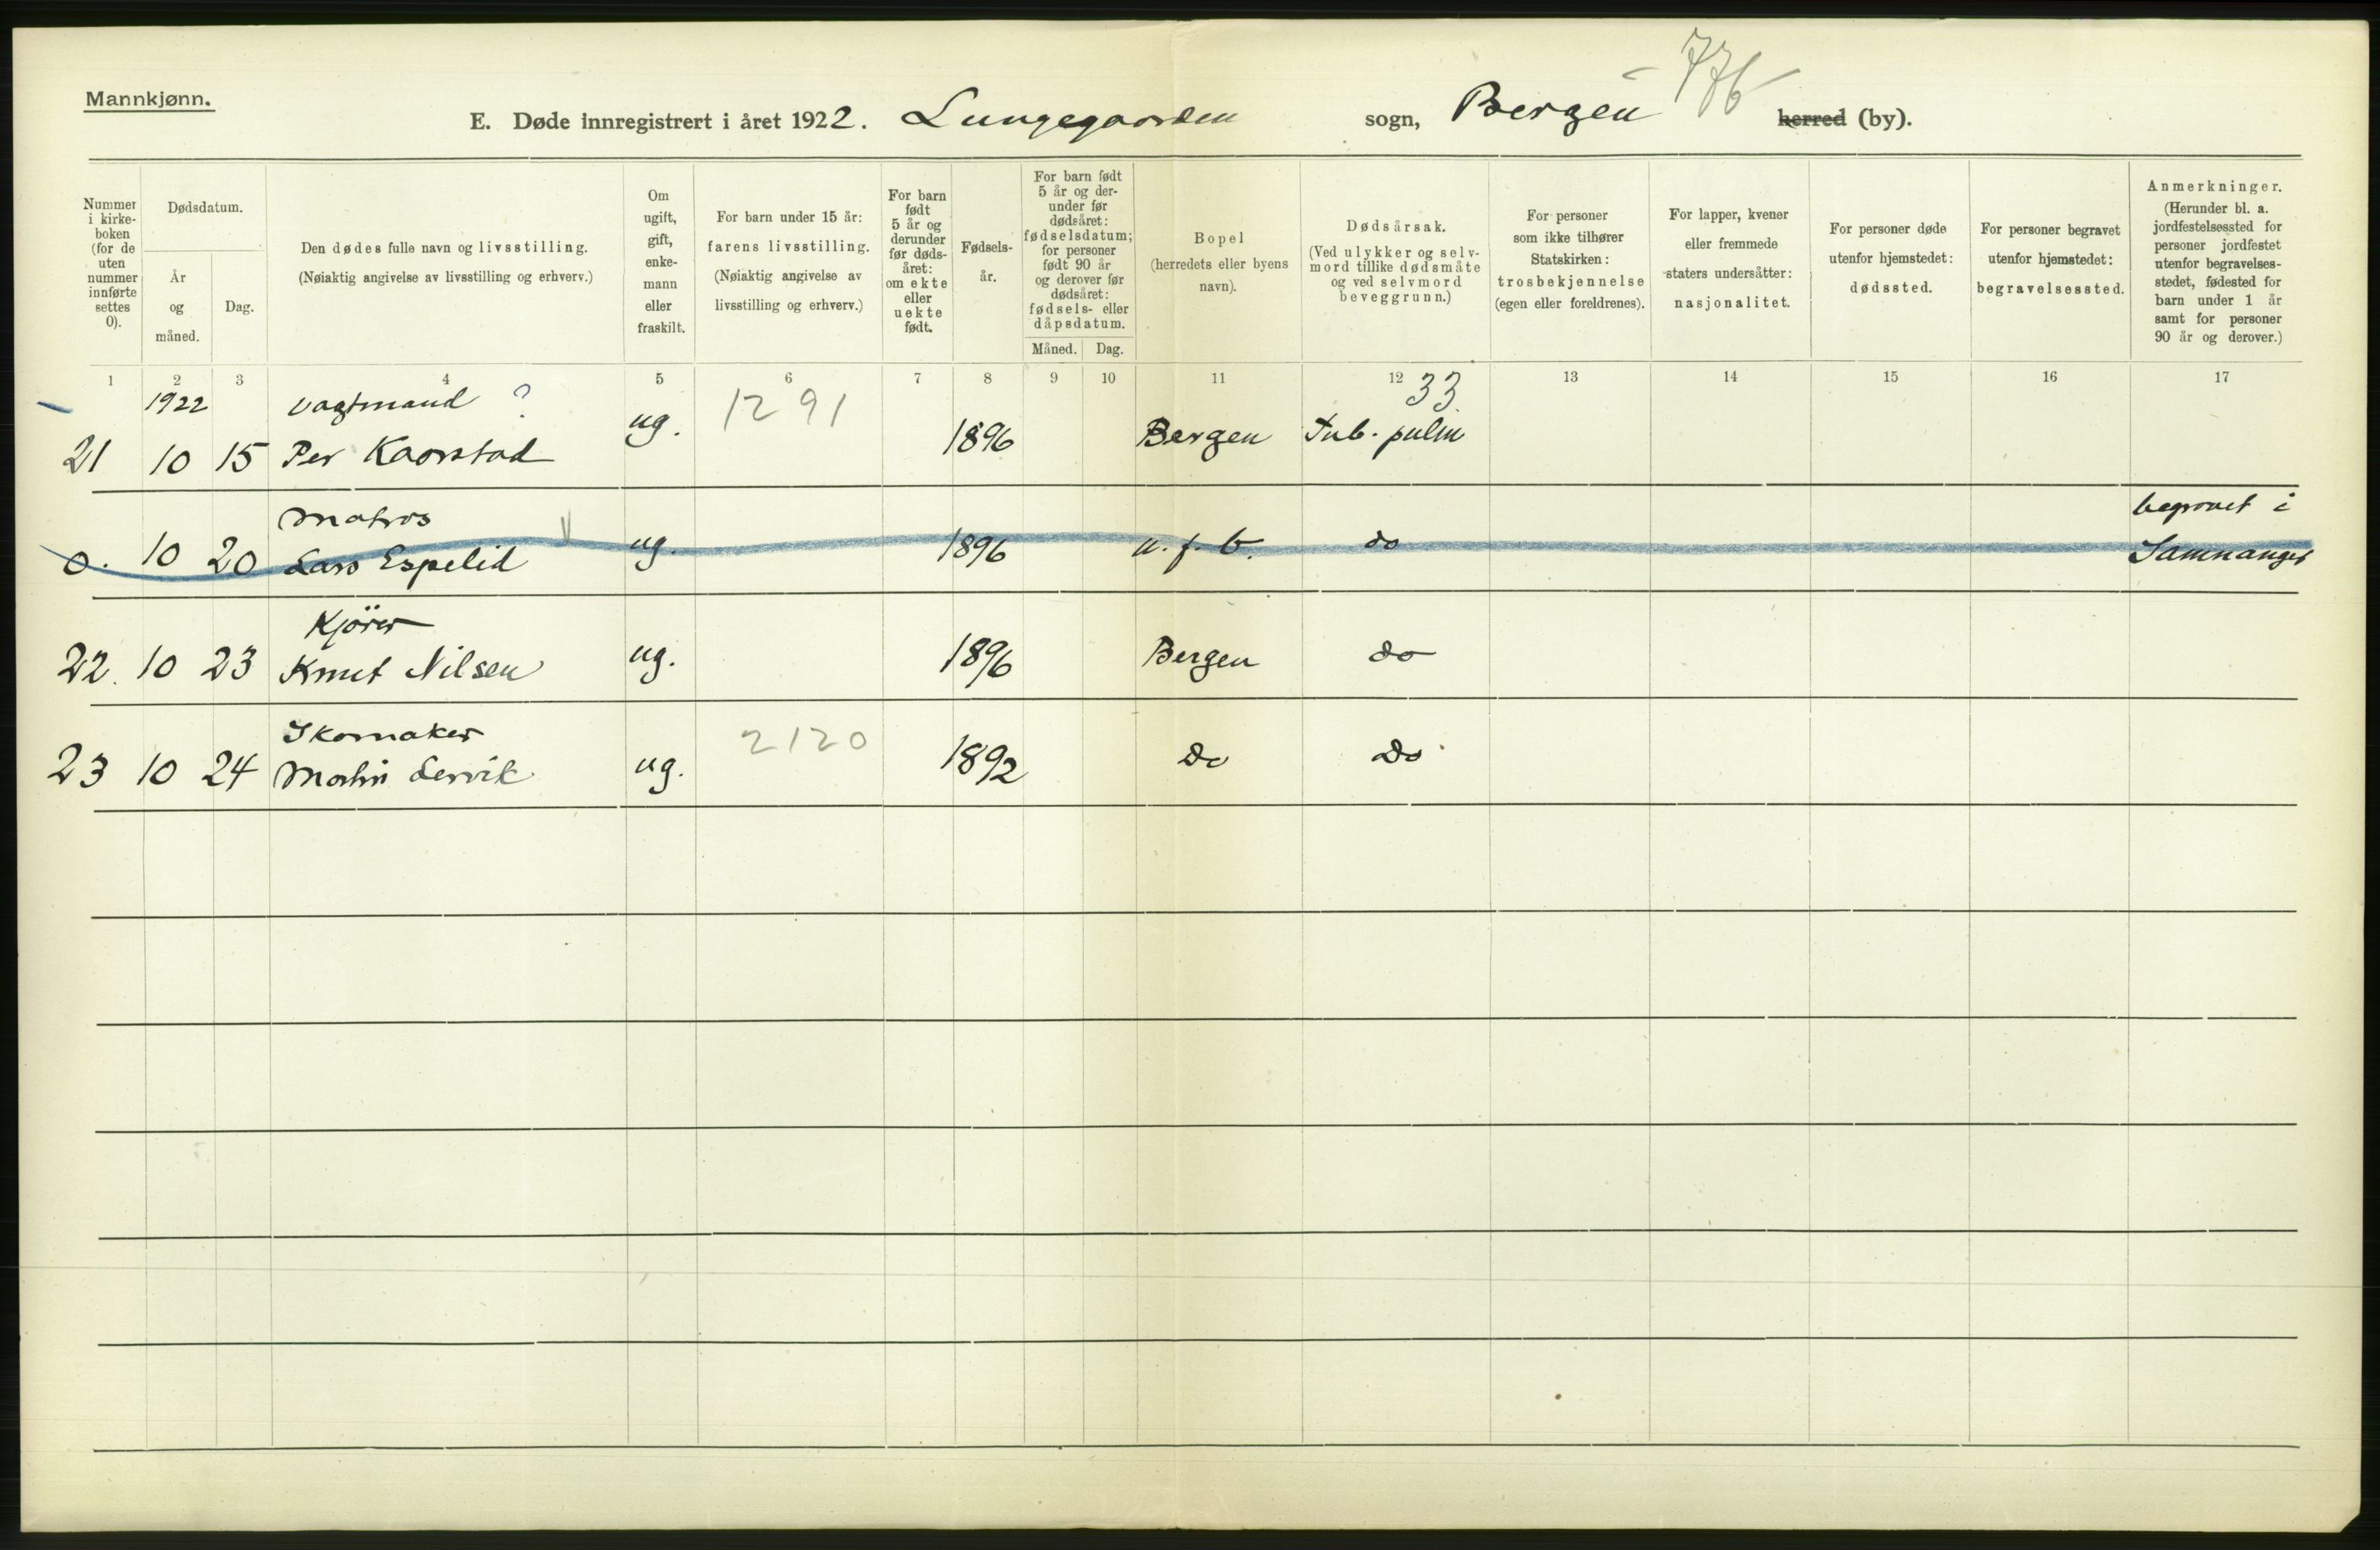 Mannkjønn.
776
E. Døde innregistrert i året 1922. Lungegaarden sogn, Bergen herred (by).
Nummer i kirke-boken (for de uten nummer innførte settes 0).
Dødsdatum.
År og måned.
Dag.
Den dødes fulle navn og livsstilling.
(Nøiaktig angivelse av livsstilling og erhverv.)
Om ugift, gift, enke-mann eller fraskilt.
For barn under 15 år:
farens livsstilling.
(Nøiaktig angivelse av livsstilling og erhverv.)
For barn født 5 år og derunder før døds-året: om ekte eller uekte født.
Fødsels-år.
For barn født 5 år og der-under før dødsåret: fødselsdatum; for personer født 90 år og derover før dødsåret: fødsels- eller dåpsdatum.
Måned. Dag.
Bopel
(herredets eller byens navn).
Dødsårsak.
(Ved ulykker og selv-mord tillike dødsmåte og ved selvmord beveggrunn.)
For personer som ikke tilhører Statskirken: trosbekjennelse (egen eller foreldrenes).
For lapper, kvener eller fremmede staters undersåtter: nasjonalitet.
For personer døde utenfor hjemstedet: dødssted.
For personer begravet utenfor hjemstedet: begravelsessted.
Anmerkninger.
(Herunder bl. a. jordfestelsessted for personer jordfestet utenfor begravelses-stedet, fødested for barn under 1 år samt for personer 90 år og derover.)
1 2 3 4 5 6 7 8 9 10 11 12 13 14 15 16 17
1922 Vagtmand ? 1291 33.
21 10 15 Per Kaarstad ug. 1896 Bergen Tub. pulm
Matros begravet i
0. 10 20 Lars Espelid ug. 1896 u. f. b. do Samnanger
Kjører
22. 10 23 Knut Nilsen ug. 1896 Bergen do
Skomaker 2120
23 10 24 Martin Lervik ug. 1892 do Do